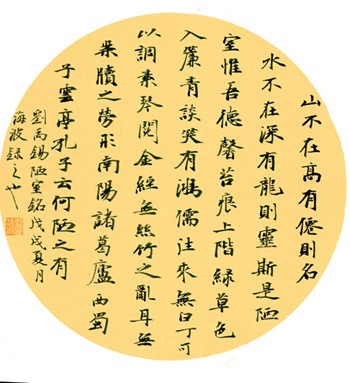 山不在高有僊則名
水不在深有龍則靈斯是陋
室惟吾德馨苔痕上階緑草色
入簾青談笑有鴻儒往來無白丁可
以調素琴閱金經無絲竹之亂耳無
案牘之勞形南陽諸葛廬西蜀
子雲亭孔子云何陋之有
劉禹錫陋室銘戊戌夏月
海波録之也